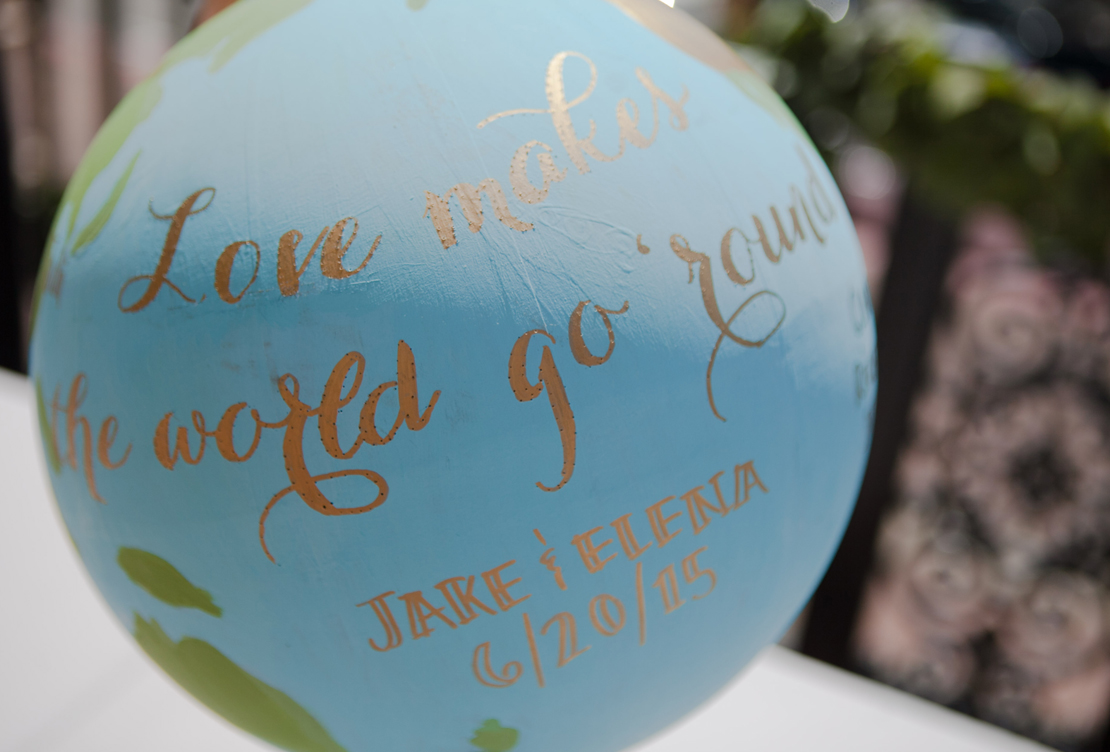 Love makes
the world go 'round
JAKE & ELENA
6/20/15